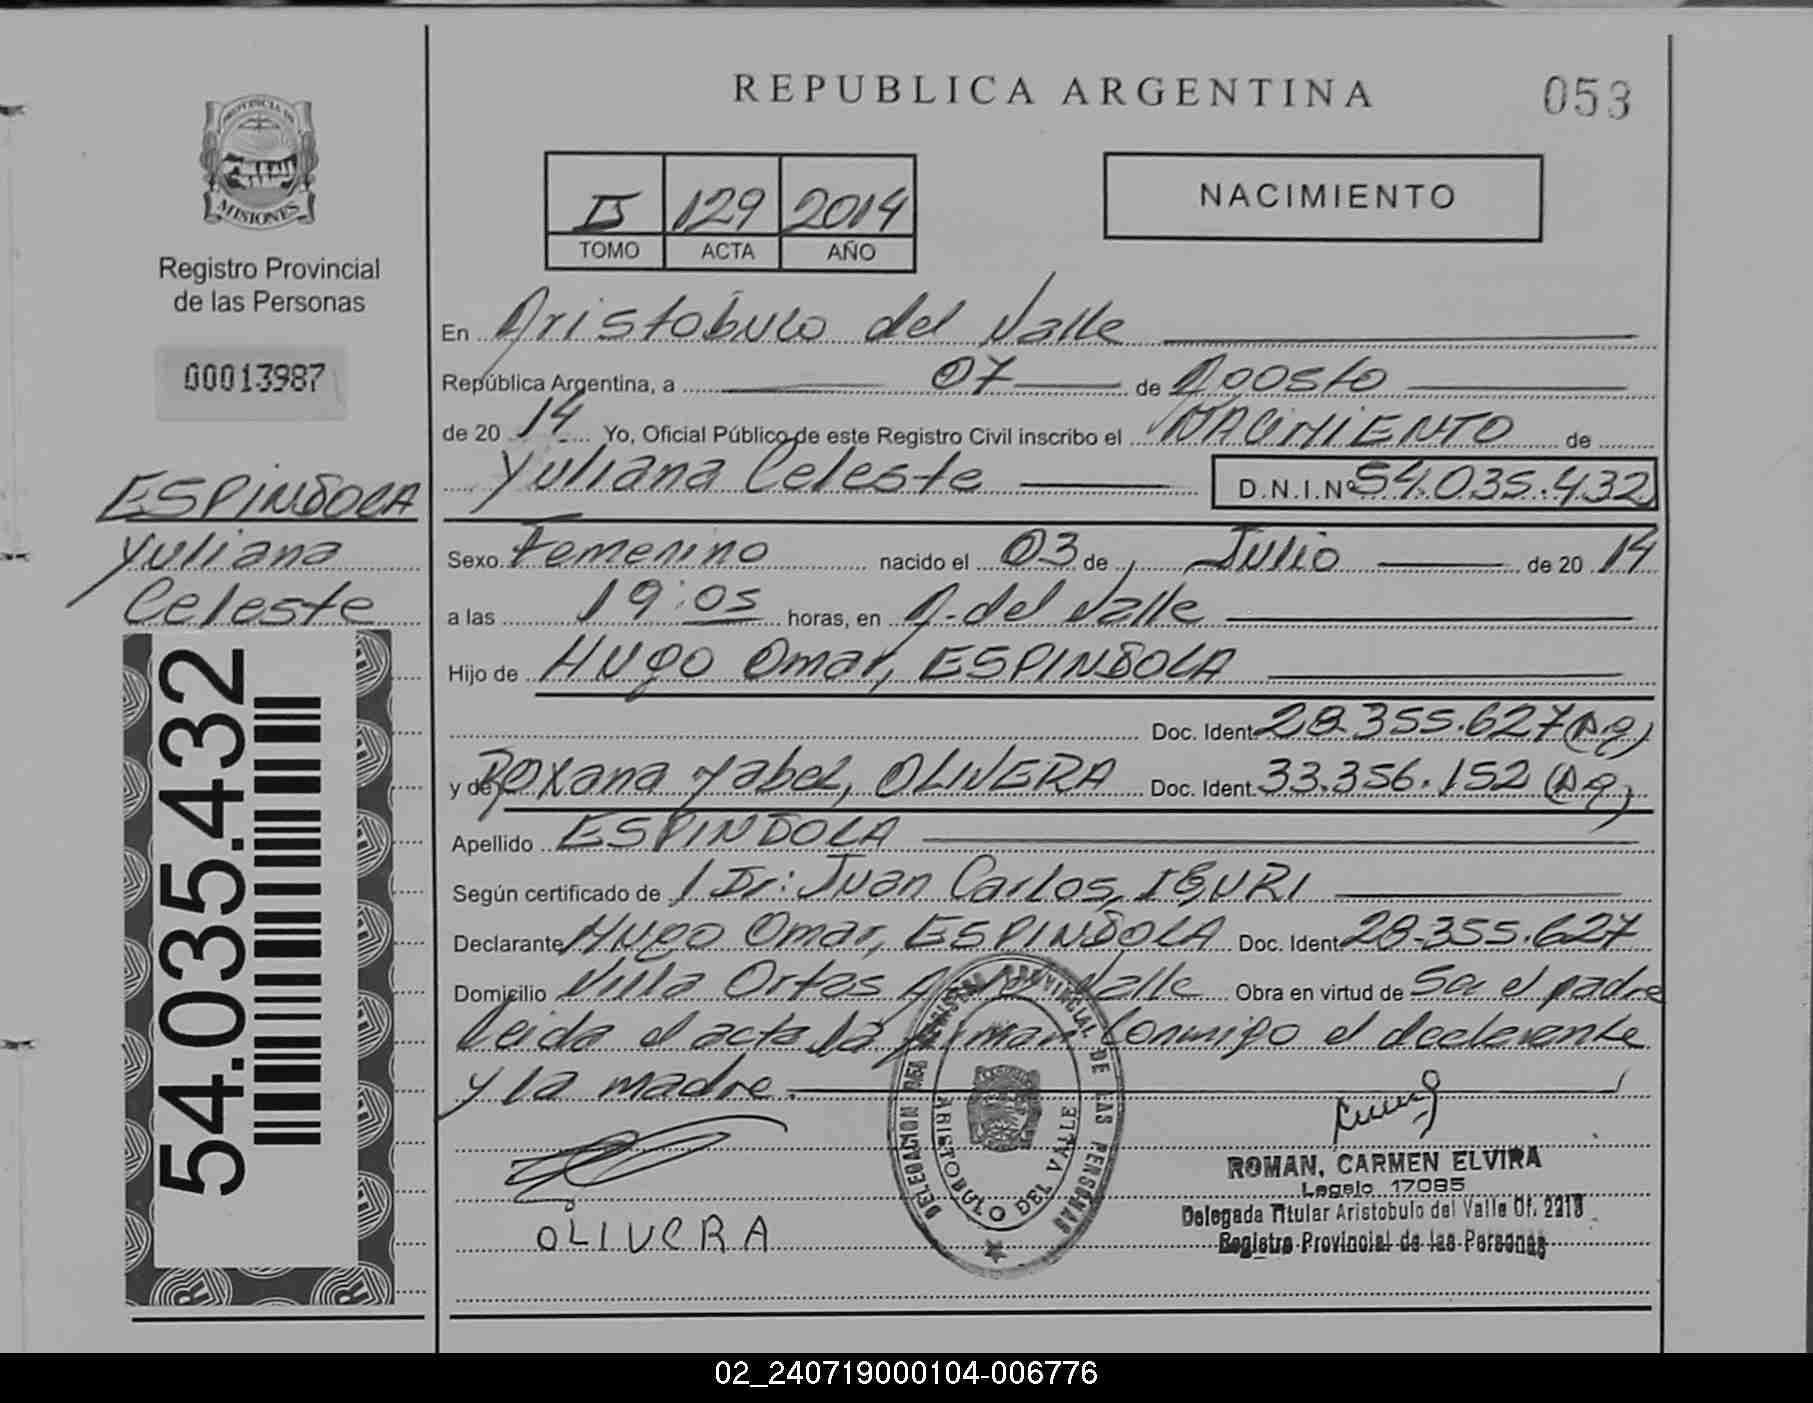 REPUBLICA ARGENTINA
053
PROVINCIA DE
MISIONES
Registro Provincial
de las Personas
00013987
ESPINDOLA
Yuliana
Celeste
54.035.432
II 129 2014
TOMO ACTA AÑO
NACIMIENTO
En Aristobulo del Valle
República Argentina, a 07 de Agosto
de 20 14 Yo, Oficial Público de este Registro Civil inscribo el NACIMIENTO de
Yuliana Celeste D.N.I.Nº 54.035.432
Sexo Femenino nacido el 03 de Julio de 20 14
a las 19:05 horas, en A. del Valle
Hijo de Hugo Omar, ESPINDOLA
Doc. Ident. 28.355.627 (Arg)
y de Roxana Yabel, OLIVERA Doc. Ident. 33.356.152 (Arg)
Apellido ESPINDOLA
Según certificado de Dr: Juan Carlos, IGURI
Declarante Hugo Omar, ESPINDOLA Doc. Ident. 28.355.627
Domicilio Villa Ortas A. del Valle Obra en virtud de Ser el padre
Leida el acta la firman Conmigo el declarante
y la madre.
OLIVERA
DELEGACION DEL REGISTRO PROVINCIAL DE LAS PERSONAS
ARISTOBULO DEL VALLE
ROMAN, CARMEN ELVIRA
Legajo 17095
Delegada Titular Aristobulo del Valle Of. 2218
Registro Provincial de las Personas
02_240719000104-006776